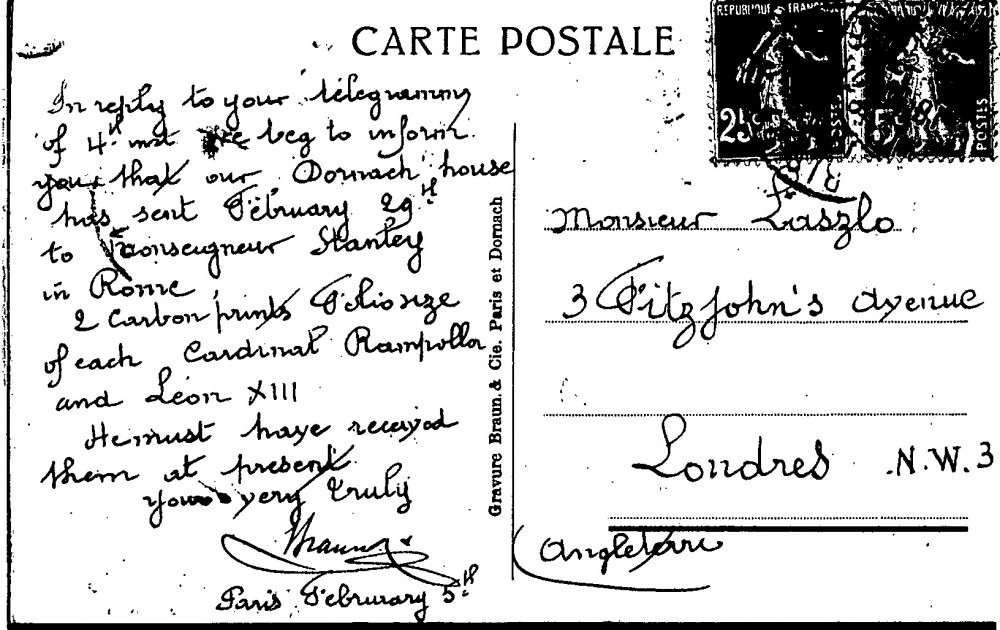 CARTE POSTALE
REPUBLIQUE FRANÇ
25
5
POSTES
POSTES
In reply to your télégramm
of 4th inst we beg to inform
you that our Dornach house
has sent February 29th
to Monseigneur Stanley
in Rome,
2 carbon prints Folio size
of each Cardinal Rampolla
and Léon XIII
He must have received
them at present
yours very truly
Braun
Paris February 5th
Gravure Braun & Cie. Paris et Dornach
Monsieur Laszlo
3 Fitzjohn's Avenue
Londres N.W.3
Angleterre